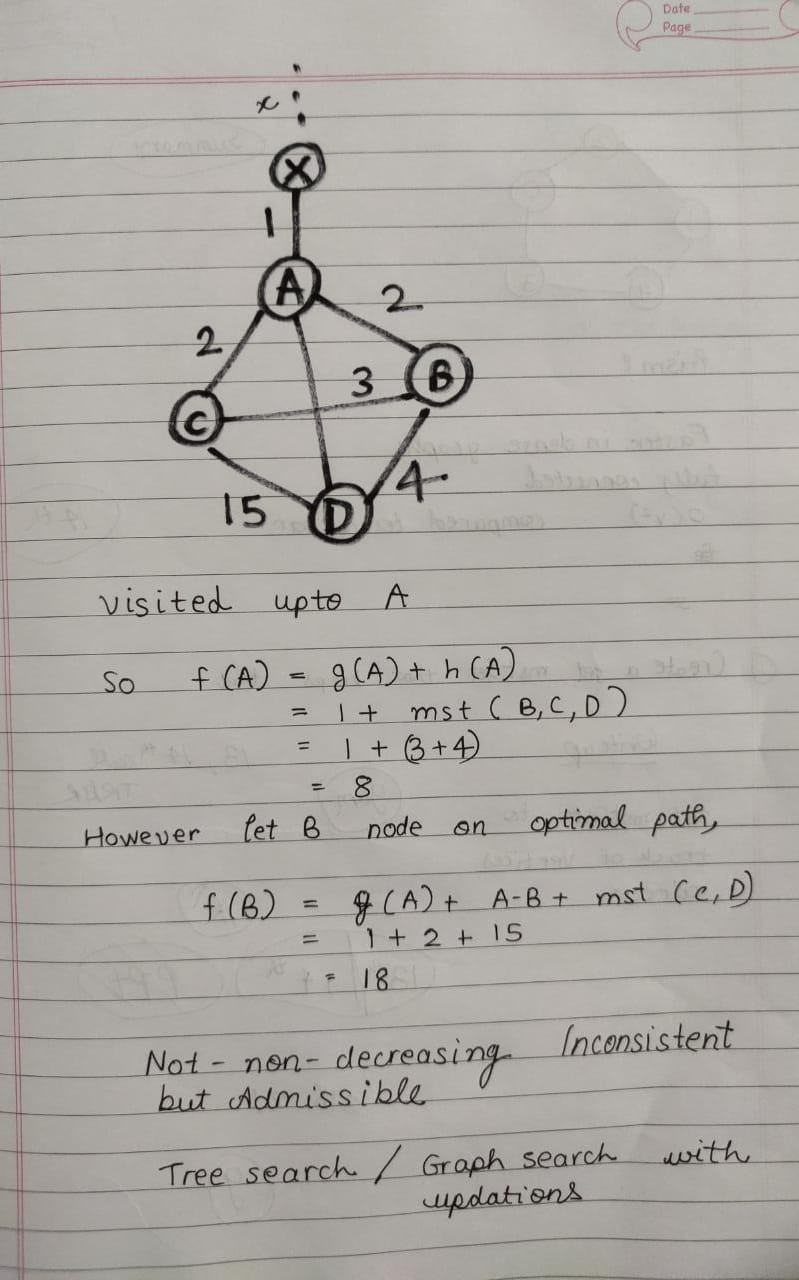 Date
Page
x
X
1
A
2
2
3
B
C
15
4
D
visited upto A
So f(A) = g(A) + h(A)
= 1 + mst (B, C, D)
= 1 + (3+4)
= 8
However let B node on optimal path,
f(B) = g(A) + A-B + mst (C, D)
= 1 + 2 + 15
= 18
Not - non - decreasing Inconsistent
but Admissible
Tree search / Graph search with
updations